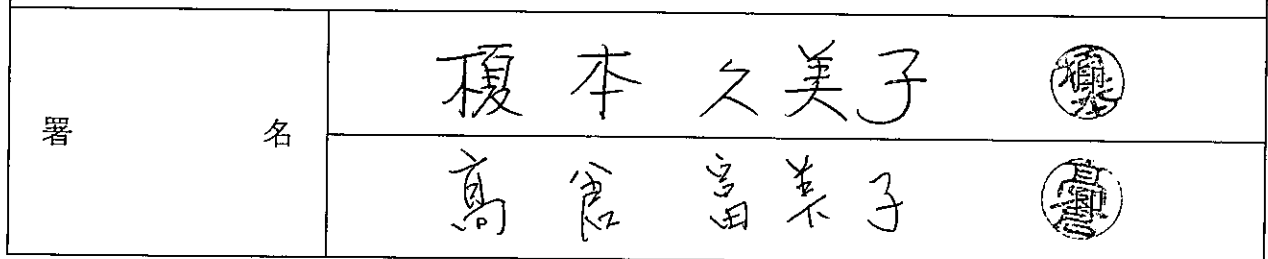 署名
榎本 久美子
髙倉 富美子